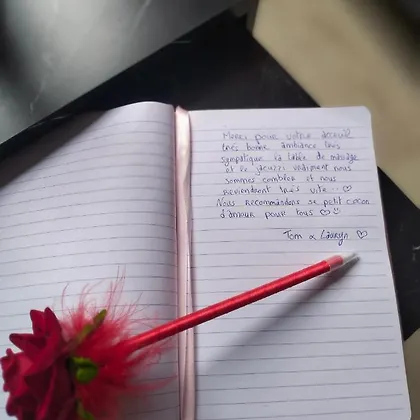 Merci pour votre acceuil
très bonne ambiance très
sympatique la table de massage
et le jacuzzi vraiment nous
sommes comblés et nous
reviendront très vite... ♡
Nous recommandons se petit cocon
d'amour pour tous ♡☺
Tom &